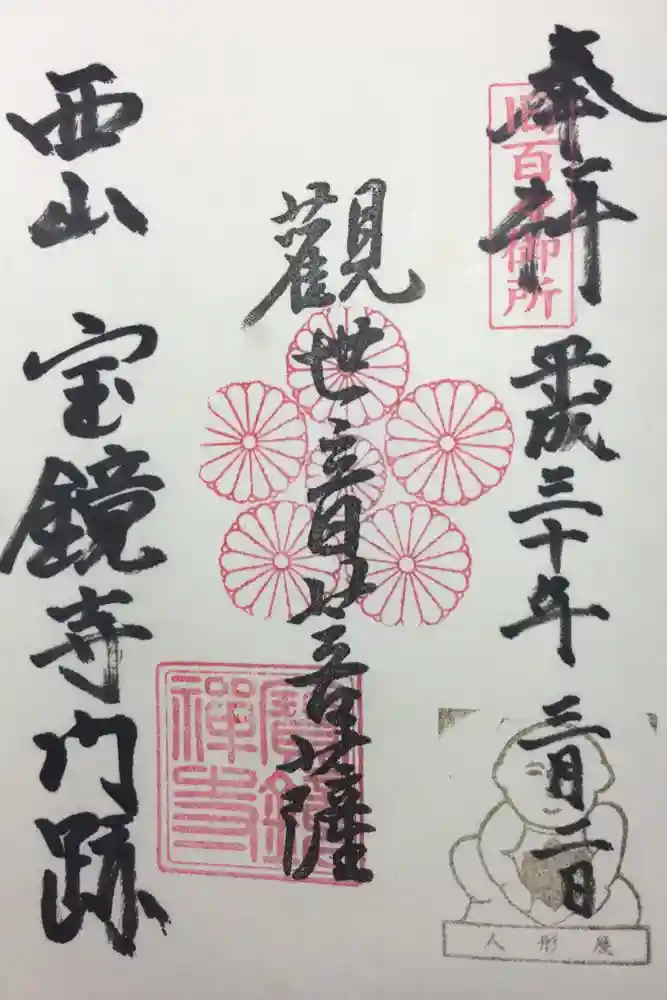 奉拝
旧百々御所
平成三十年 三月二日
觀世音菩薩
寳鏡禅寺
西山 宝鏡寺門跡
人形展